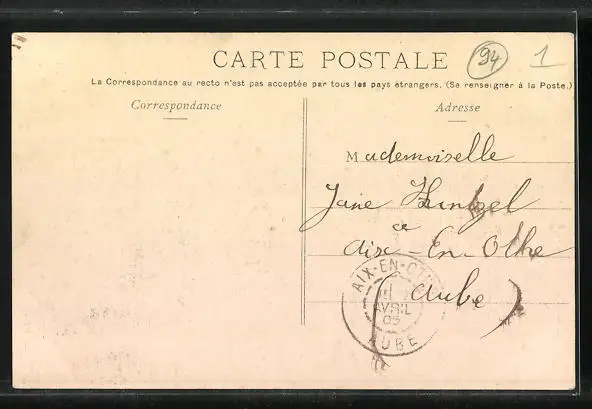 CARTE POSTALE
94
1
La Correspondance au recto n'est pas acceptée par tous les pays étrangers. (Se renseigner à la Poste.)
Correspondance
Adresse
Mademoiselle
Jane
a
Aix-En-Othe
(Aube)
AIX-EN-OTHE
AVRIL
05
AUBE